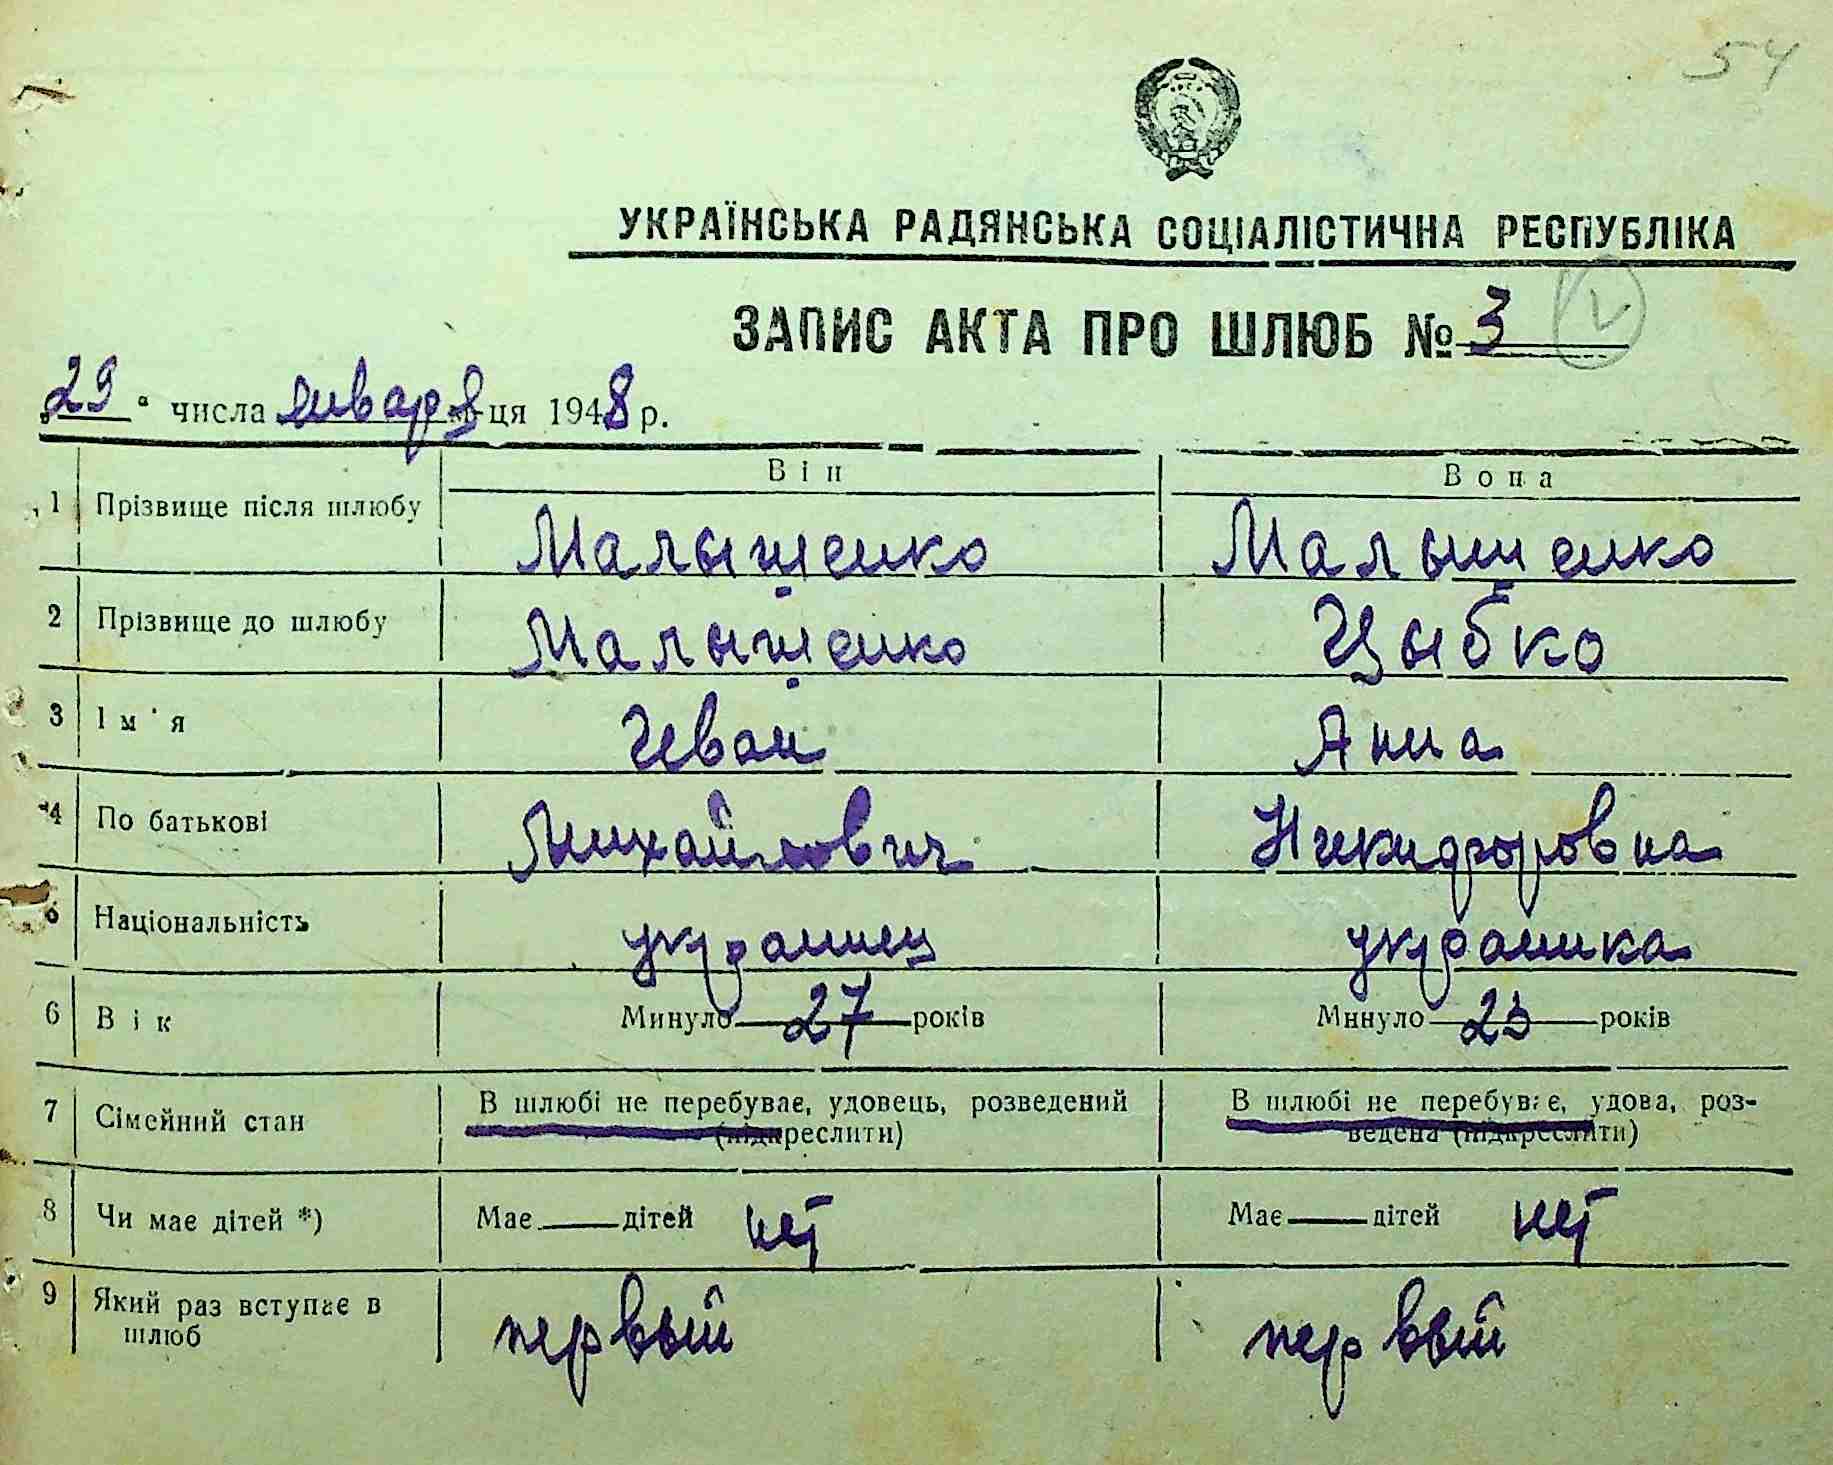 54
УКРАЇНСЬКА РАДЯНСЬКА СОЦІАЛІСТИЧНА РЕСПУБЛІКА
ЗАПИС АКТА ПРО ШЛЮБ № 3
„29“ числа января м-ця 1948 р.
Він Вона
1 Прізвище після шлюбу Малышенко Малышенко
2 Прізвище до шлюбу Малышенко Цыбко
3 Ім'я Иван Анна
4 По батькові Михайлович Никифоровна
5 Національність украинец украинка
6 Вік Минуло 27 років Минуло 23 років
7 Сімейний стан В шлюбі не перебуває, удовець, розведений В шлюбі не перебуває, удова, роз-
(підкреслити) ведена (підкреслити)
8 Чи має дітей *) Має дітей нет Має дітей нет
9 Який раз вступає в первый первый
шлюб